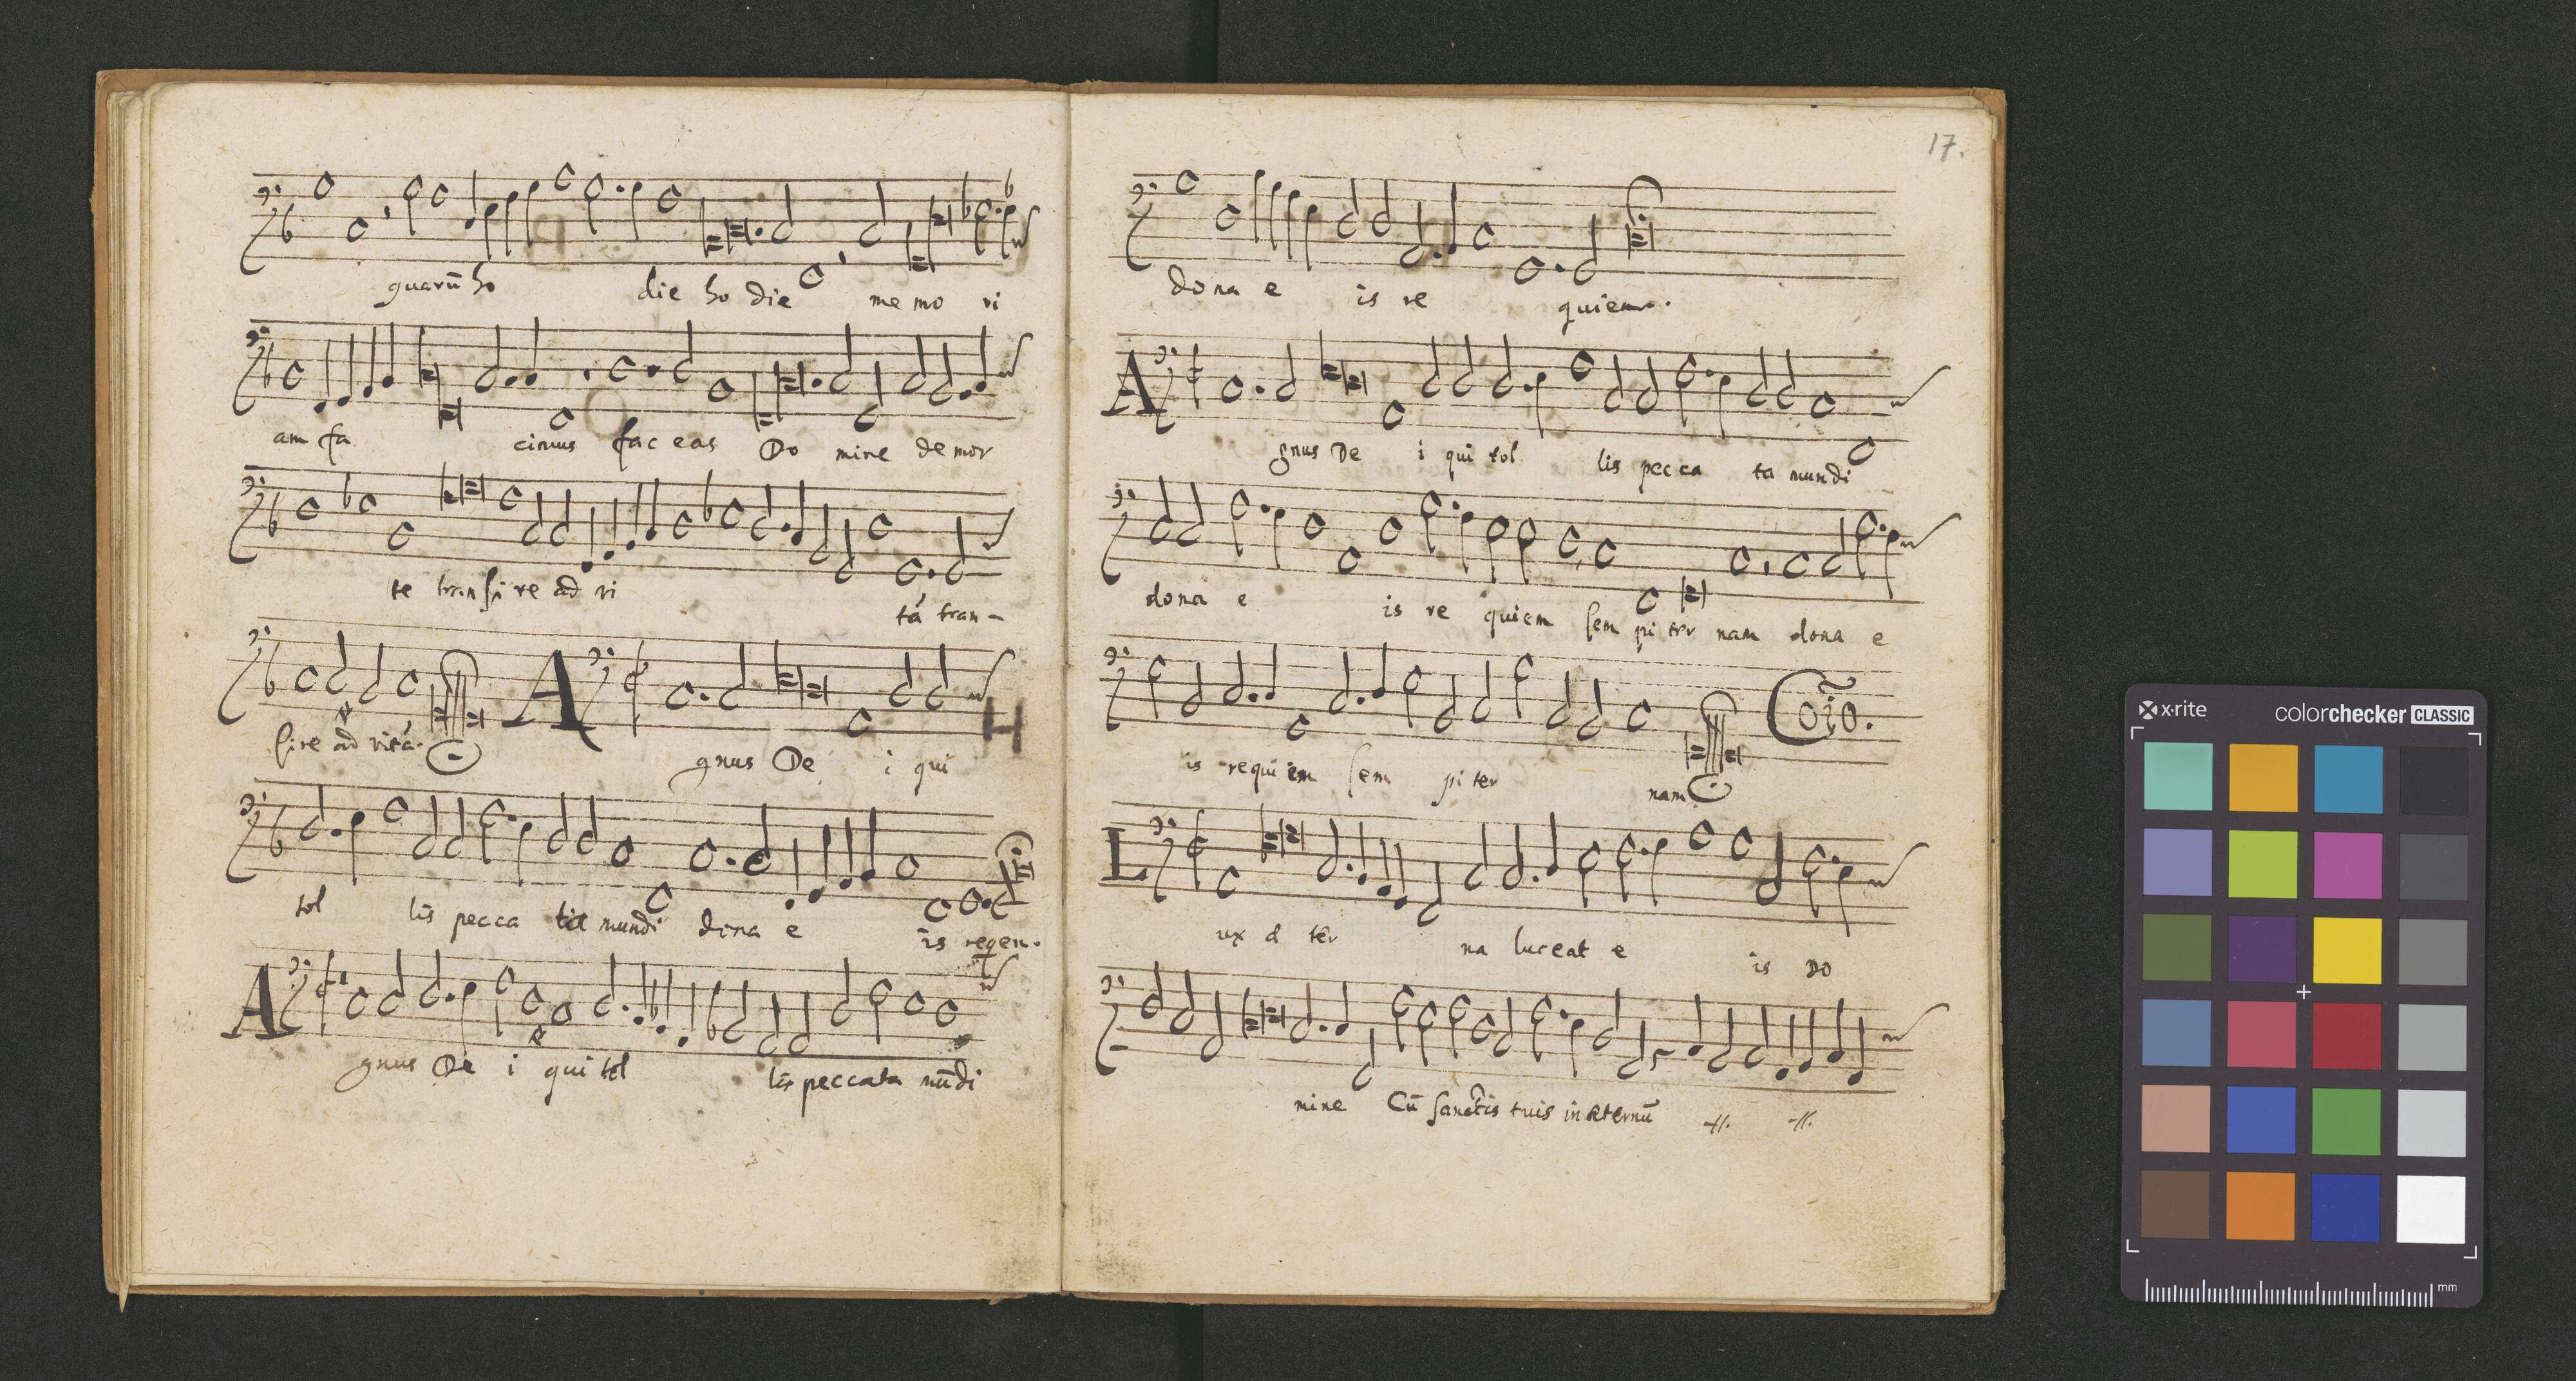 quarū ho die ho die me mo ri
am fa cimus fac eas Do mine de mor
te transi re ad vi tā tran-
sire ad vitā. A gnus De i qui
tol lis pecca ta mundi dona e is
A gnus De i qui tol lis peccata mūdi
17.
dona e is re quiem.
A gnus De i qui tol lis pecca ta mundi
dona e is re quiem sem pi ter nam dona e
is requi em sem pi ter nam Cōio.
L ux æ ter na luceat e is Do
mine Cū sanctis tuis in æternū
x·rite
colorchecker CLASSIC
mm